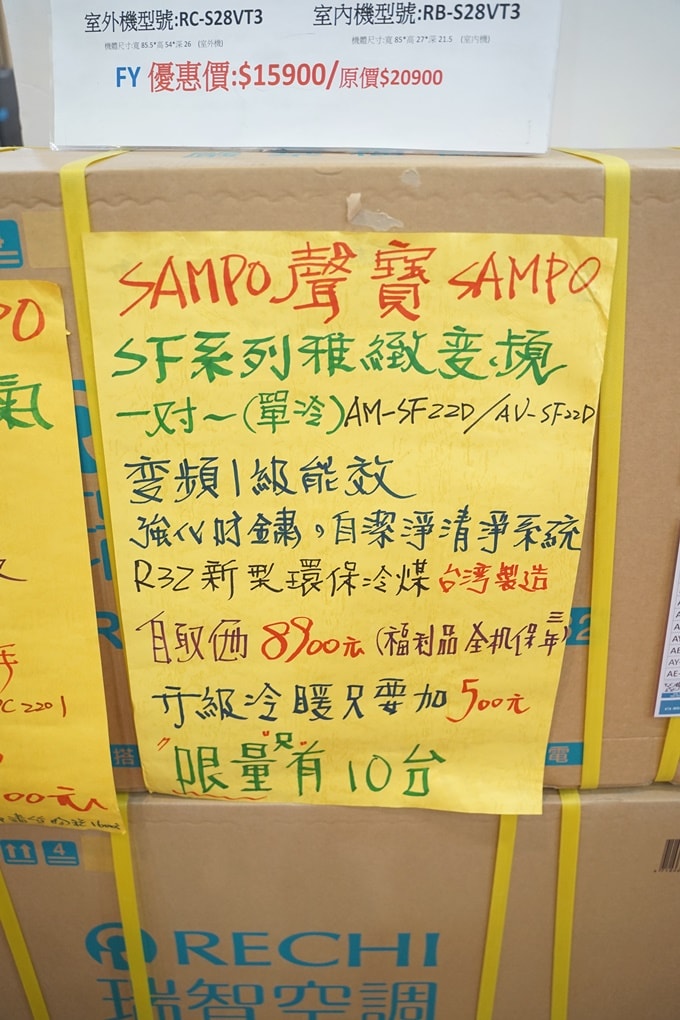 室外機型號:RC-S28VT3 室內機型號:RB-S28VT3
機體尺寸:寬 85.5*高 54*深 26 (室外機) 機體尺寸:寬 85*高 27*深 21.5 (室內機)
FY 優惠價:$15900/原價$20900
SAMPO 聲寶 SAMPO
SF系列雅緻变頻
一对一(單冷)AM-SF22D/AU-SF22D
変頻1級能效
強化防鏽。自潔淨清淨系統
R32新型環保冷煤 台湾製造
自取価 8900元 (福利品 全机保三年)
升級冷暖只要加500元
限量只有10台
氣
00元
4
搭
電
RECHI
瑞智空調